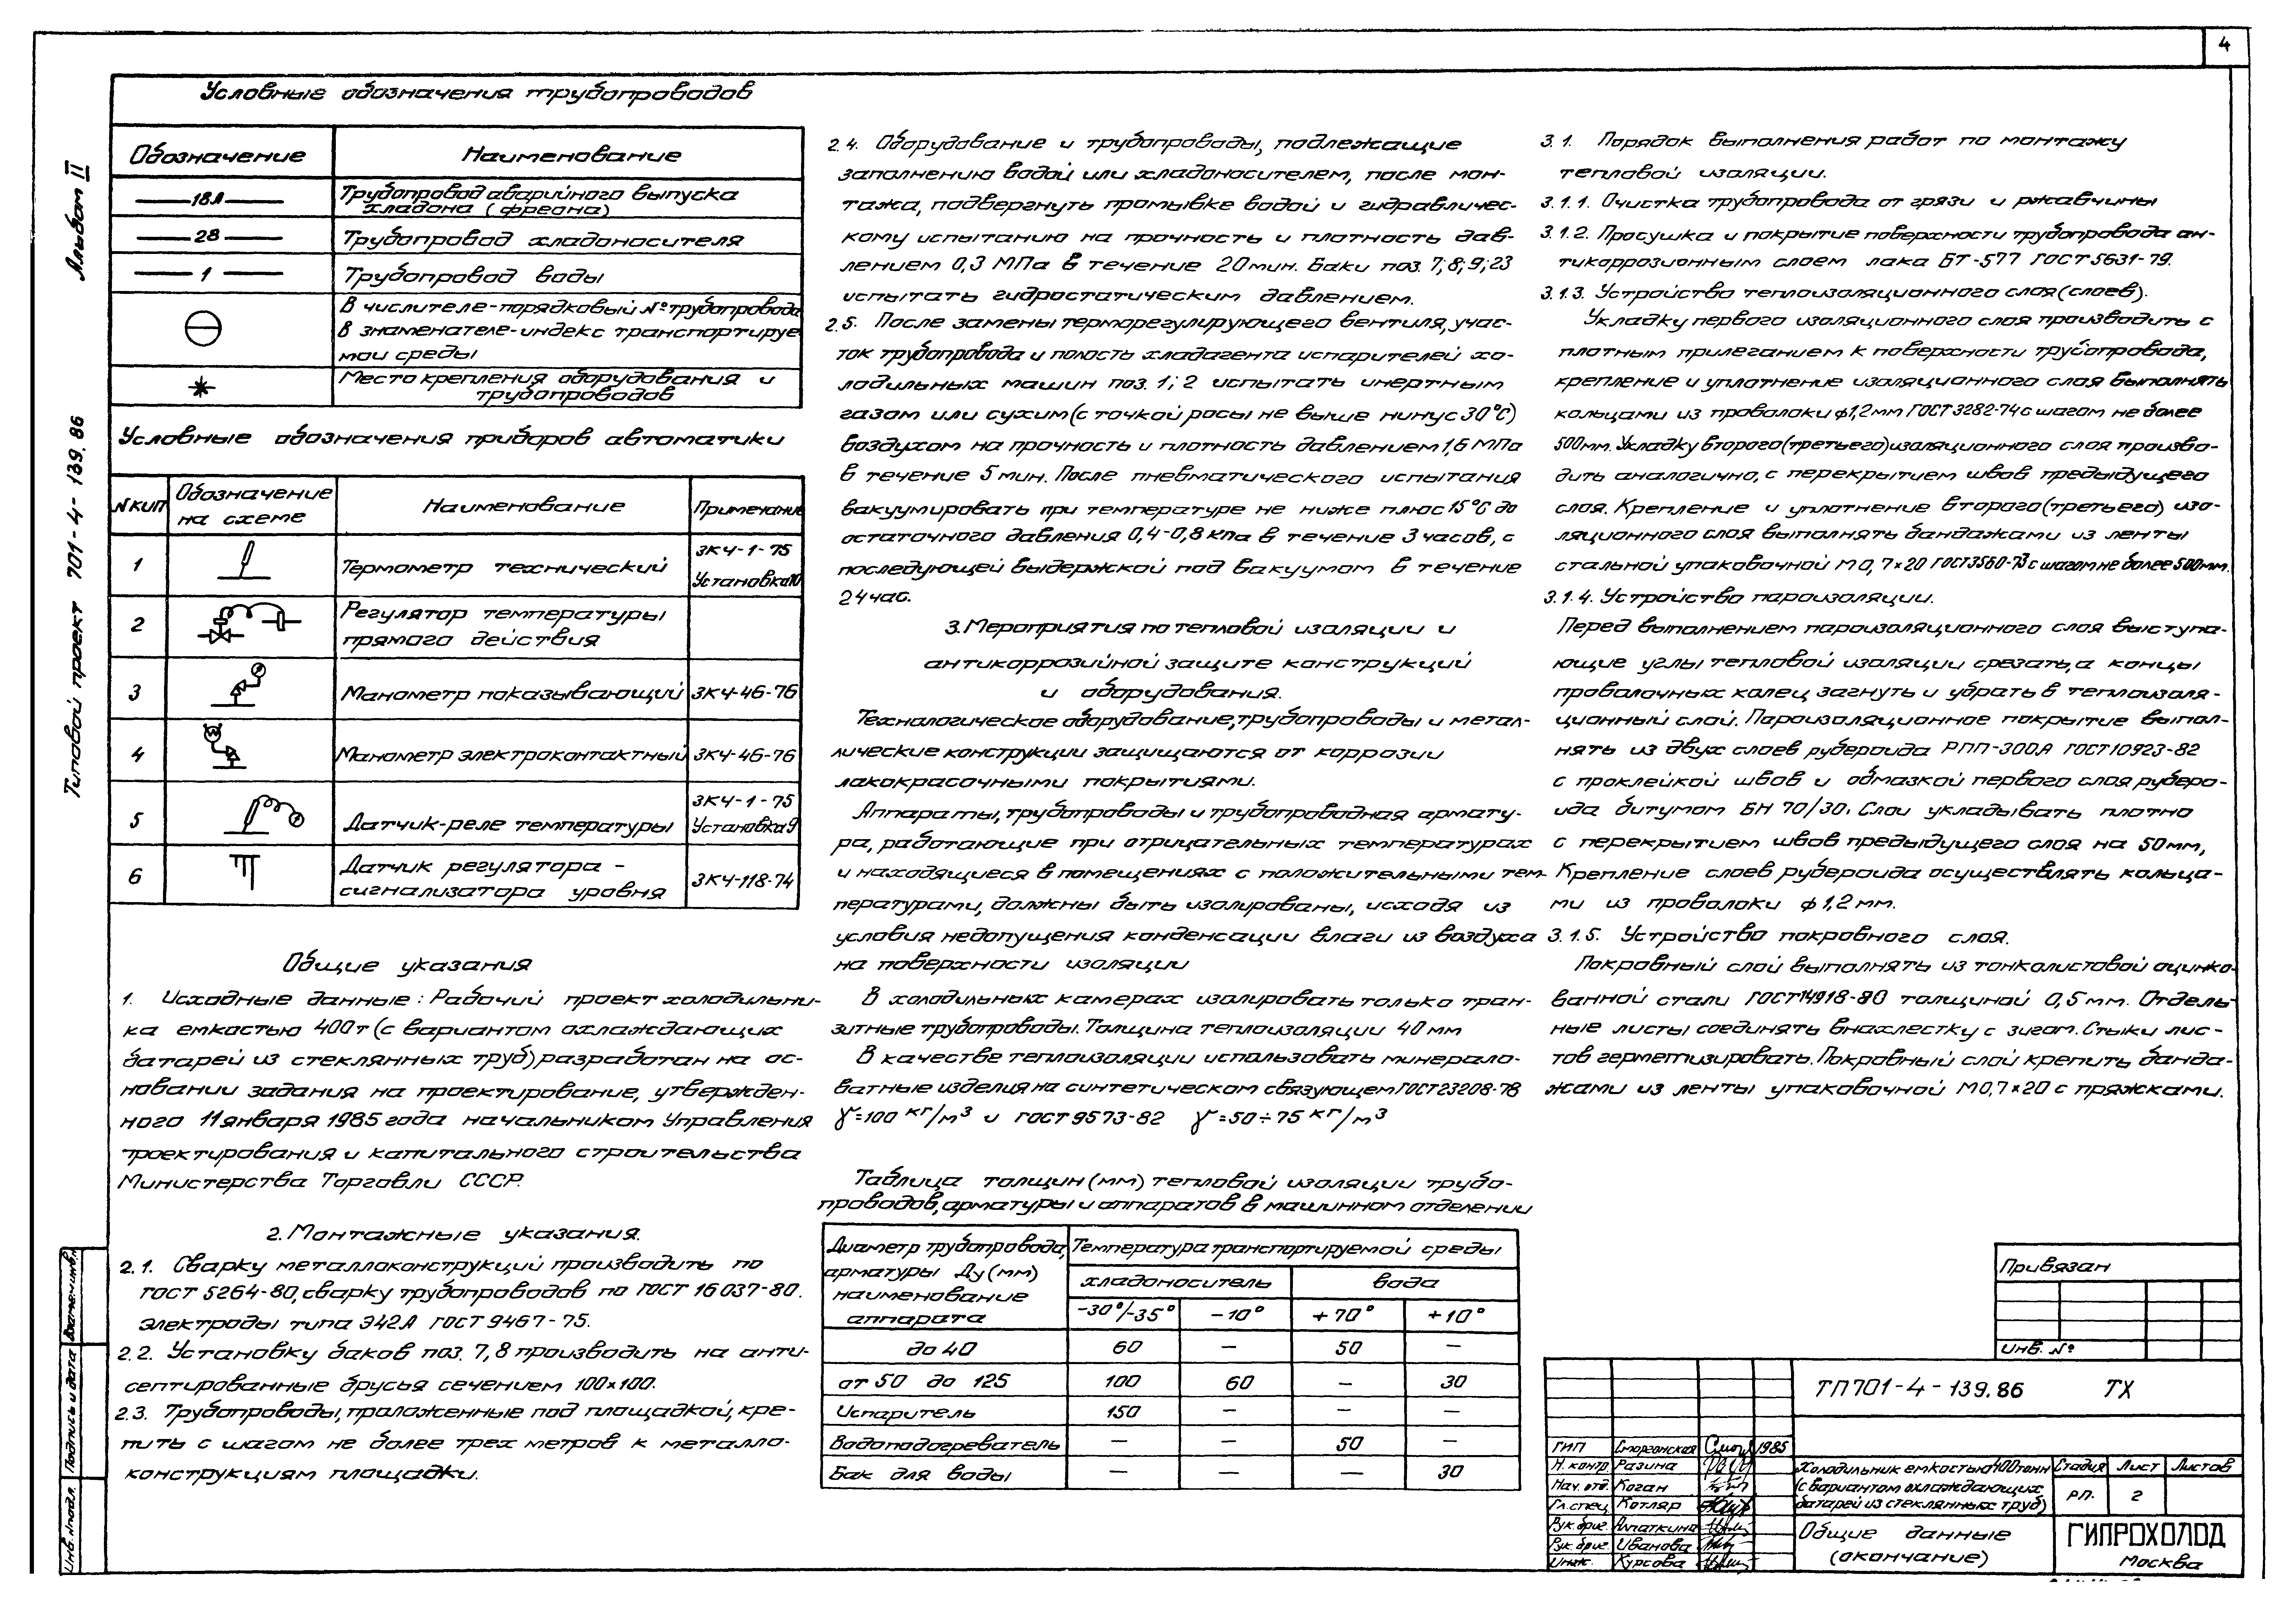 4
Альбом II
Типовой проект 701-4-139.86
Условные обозначения трубопроводов
Обозначение Наименование
18А Трубопровод аварийного выпуска
хладона (фреона)
28 Трубопровод хладоносителя
1 Трубопровод воды
В числителе-порядковый № трубопровода
В знаменателе-индекс транспортируе
мой среды
Место крепления оборудования и
трубопроводов
Условные обозначения приборов автоматики
N кип Обозначение на схеме Наименование Примечание
1 Термометр технический ЗКЧ-1-75 Установка 10
2 Регулятор температуры
прямого действия
3 Манометр показывающий ЗКЧ-46-76
4 Манометр электроконтактный ЗКЧ-46-76
5 Датчик-реле температуры ЗКЧ-1-75 Установка 9
6 Датчик регулятора -
сигнализатора уровня ЗКЧ-118-74
Общие указания
1. Исходные данные: Рабочий проект холодильни-
ка емкостью 400т (с вариантом охлаждающих
батарей из стеклянных труб) разработан на ос-
новании задания на проектирование, утвержден-
ного 11 января 1985 года начальником Управления
проектирования и капитального строительства
Министерства Торговли СССР.
2. Монтажные указания.
2.1. Сварку металлоконструкций производить по
ГОСТ 5264-80, сварку трубопроводов по ГОСТ 16037-80.
Электроды типа Э42А ГОСТ 9467-75.
2.2. Установку баков поз. 7,8 производить на анти-
септированные брусья сечением 100×100.
2.3. Трубопроводы, проложенные под площадкой, кре-
пить с шагом не более трех метров к металло-
конструкциям площадки.
2.4. Оборудование и трубопроводы, подлежащие
заполнению водой или хладоносителем, после мон-
тажа, подвергнуть промывке водой и гидравличес-
кому испытанию на прочность и плотность дав-
лением 0,3 МПа в течение 20 мин. Баки поз. 7; 8; 9; 23
испытать гидростатическим давлением.
2.5. После замены терморегулирующего вентиля, учас-
ток трубопровода и полость хладагента испарителей хо-
лодильных машин поз. 1; 2 испытать инертным
газом или сухим (с точкой росы не выше минус 30°С)
воздухом на прочность и плотность давлением 1,6 МПа
в течение 5 мин. После пневматического испытания
вакуумировать при температуре не ниже плюс 15°С до
остаточного давления 0,4-0,8 кПа в течение 3 часов, с
последующей выдержкой под вакуумом в течение
24 час.
3. Мероприятия по тепловой изоляции и
антикоррозийной защите конструкций
и оборудования.
Технологическое оборудование, трубопроводы и метал-
лические конструкции защищаются от коррозии
лакокрасочными покрытиями.
Аппараты, трубопроводы и трубопроводная армату-
ра, работающие при отрицательных температурах
и находящиеся в помещениях с положительными тем-
пературами, должны быть изолированы, исходя из
условия недопущения конденсации влаги из воздуха
на поверхности изоляции
В холодильных камерах изолировать только тран-
зитные трубопроводы. Толщина теплоизоляции 40 мм
В качестве теплоизоляции использовать минерало-
ватные изделия на синтетическом связующем ГОСТ 23208-78
γ=100 кг/м³ и ГОСТ 9573-82 γ=50÷75 кг/м³
Таблица толщин (мм) тепловой изоляции трубо-
проводов, арматуры и аппаратов в машинном отделении
Диаметр трубопровода, арматуры Ду (мм) наименование аппарата Температура транспортируемой среды
хладоноситель вода
-30°/-35° -10° +70° +10°
до 40 60 — 50 —
от 50 до 125 100 60 — 30
Испаритель 150 — — —
Водоподогреватель — — 50 —
Бак для воды — — — 30
3.1. Порядок выполнения работ по монтажу
тепловой изоляции.
3.1.1. Очистка трубопровода от грязи и ржавчины
3.1.2. Просушка и покрытие поверхности трубопровода ан-
тикоррозионным слоем лака БТ-577 ГОСТ 5631-79.
3.1.3. Устройство теплоизоляционного слоя (слоев).
Укладку первого изоляционного слоя производить с
плотным прилеганием к поверхности трубопровода,
крепление и уплотнение изоляционного слоя выполнять
кольцами из проволоки ф1,2 мм ГОСТ 3282-74 с шагом не более
500мм. Укладку второго (третьего) изоляционного слоя произво-
дить аналогично, с перекрытием швов предыдущего
слоя. Крепление и уплотнение второго (третьего) изо-
ляционного слоя выполнять бандажами из ленты
стальной упаковочной М 0,7×20 ГОСТ 3560-73 с шагом не более 500мм.
3.1.4. Устройство пароизоляции.
Перед выполнением пароизоляционного слоя выступа-
ющие углы тепловой изоляции срезать, а концы
проволочных колец загнуть и убрать в теплоизоля-
ционный слой. Пароизоляционное покрытие выпол-
нять из двух слоев рубероида РПП-300А ГОСТ 10923-82
с проклейкой швов и обмазкой первого слоя руберо-
ида битумом БН 70/30. Слои укладывать плотно
с перекрытием швов предыдущего слоя на 50мм,
Крепление слоев рубероида осуществлять кольца-
ми из проволоки ф 1,2 мм.
3.1.5. Устройство покровного слоя.
Покровный слой выполнять из тонколистовой оцинко-
ванной стали ГОСТ 14918-80 толщиной 0,5 мм. Отдель-
ные листы соединять внахлестку с зигом. Стыки лис-
тов герметизировать. Покровный слой крепить банда-
жами из ленты упаковочной М 0,7×20 с пряжками.
Привязан
Инв. №
ТП 701-4-139.86 ТХ
ГИП Сморгонская 1985
Н. контр Разина
Нач. отд. Коган
Гл. спец Котляр
Рук. бриг. Аппаткина
Рук. бриг Иванова
Инж. Курсова
Холодильник емкостью 400 тонн
(с вариантом охлаждающих
батарей из стеклянных труб)
Стадия Лист Листов
РП. 2
Общие данные
(окончание)
ГИПРОХОЛОД
Москва
Взам. инв.
Подпись и дата
Инв. № подл.